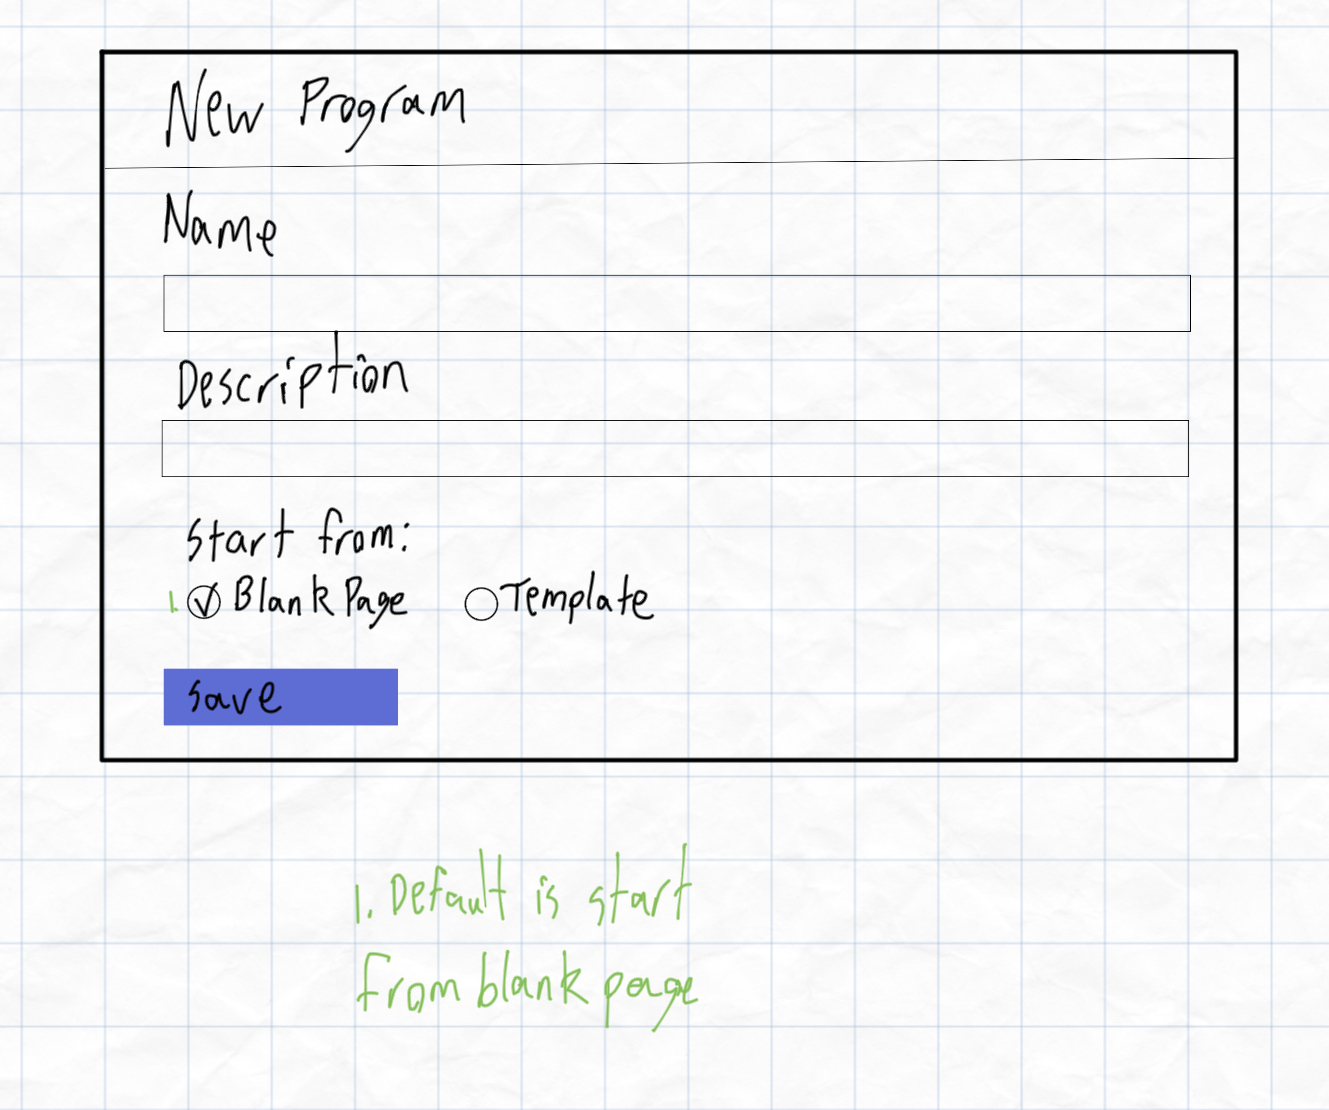 New Program
Name
Description
Start from:
1. Blank Page Template
Save
1. Default is start
from blank page